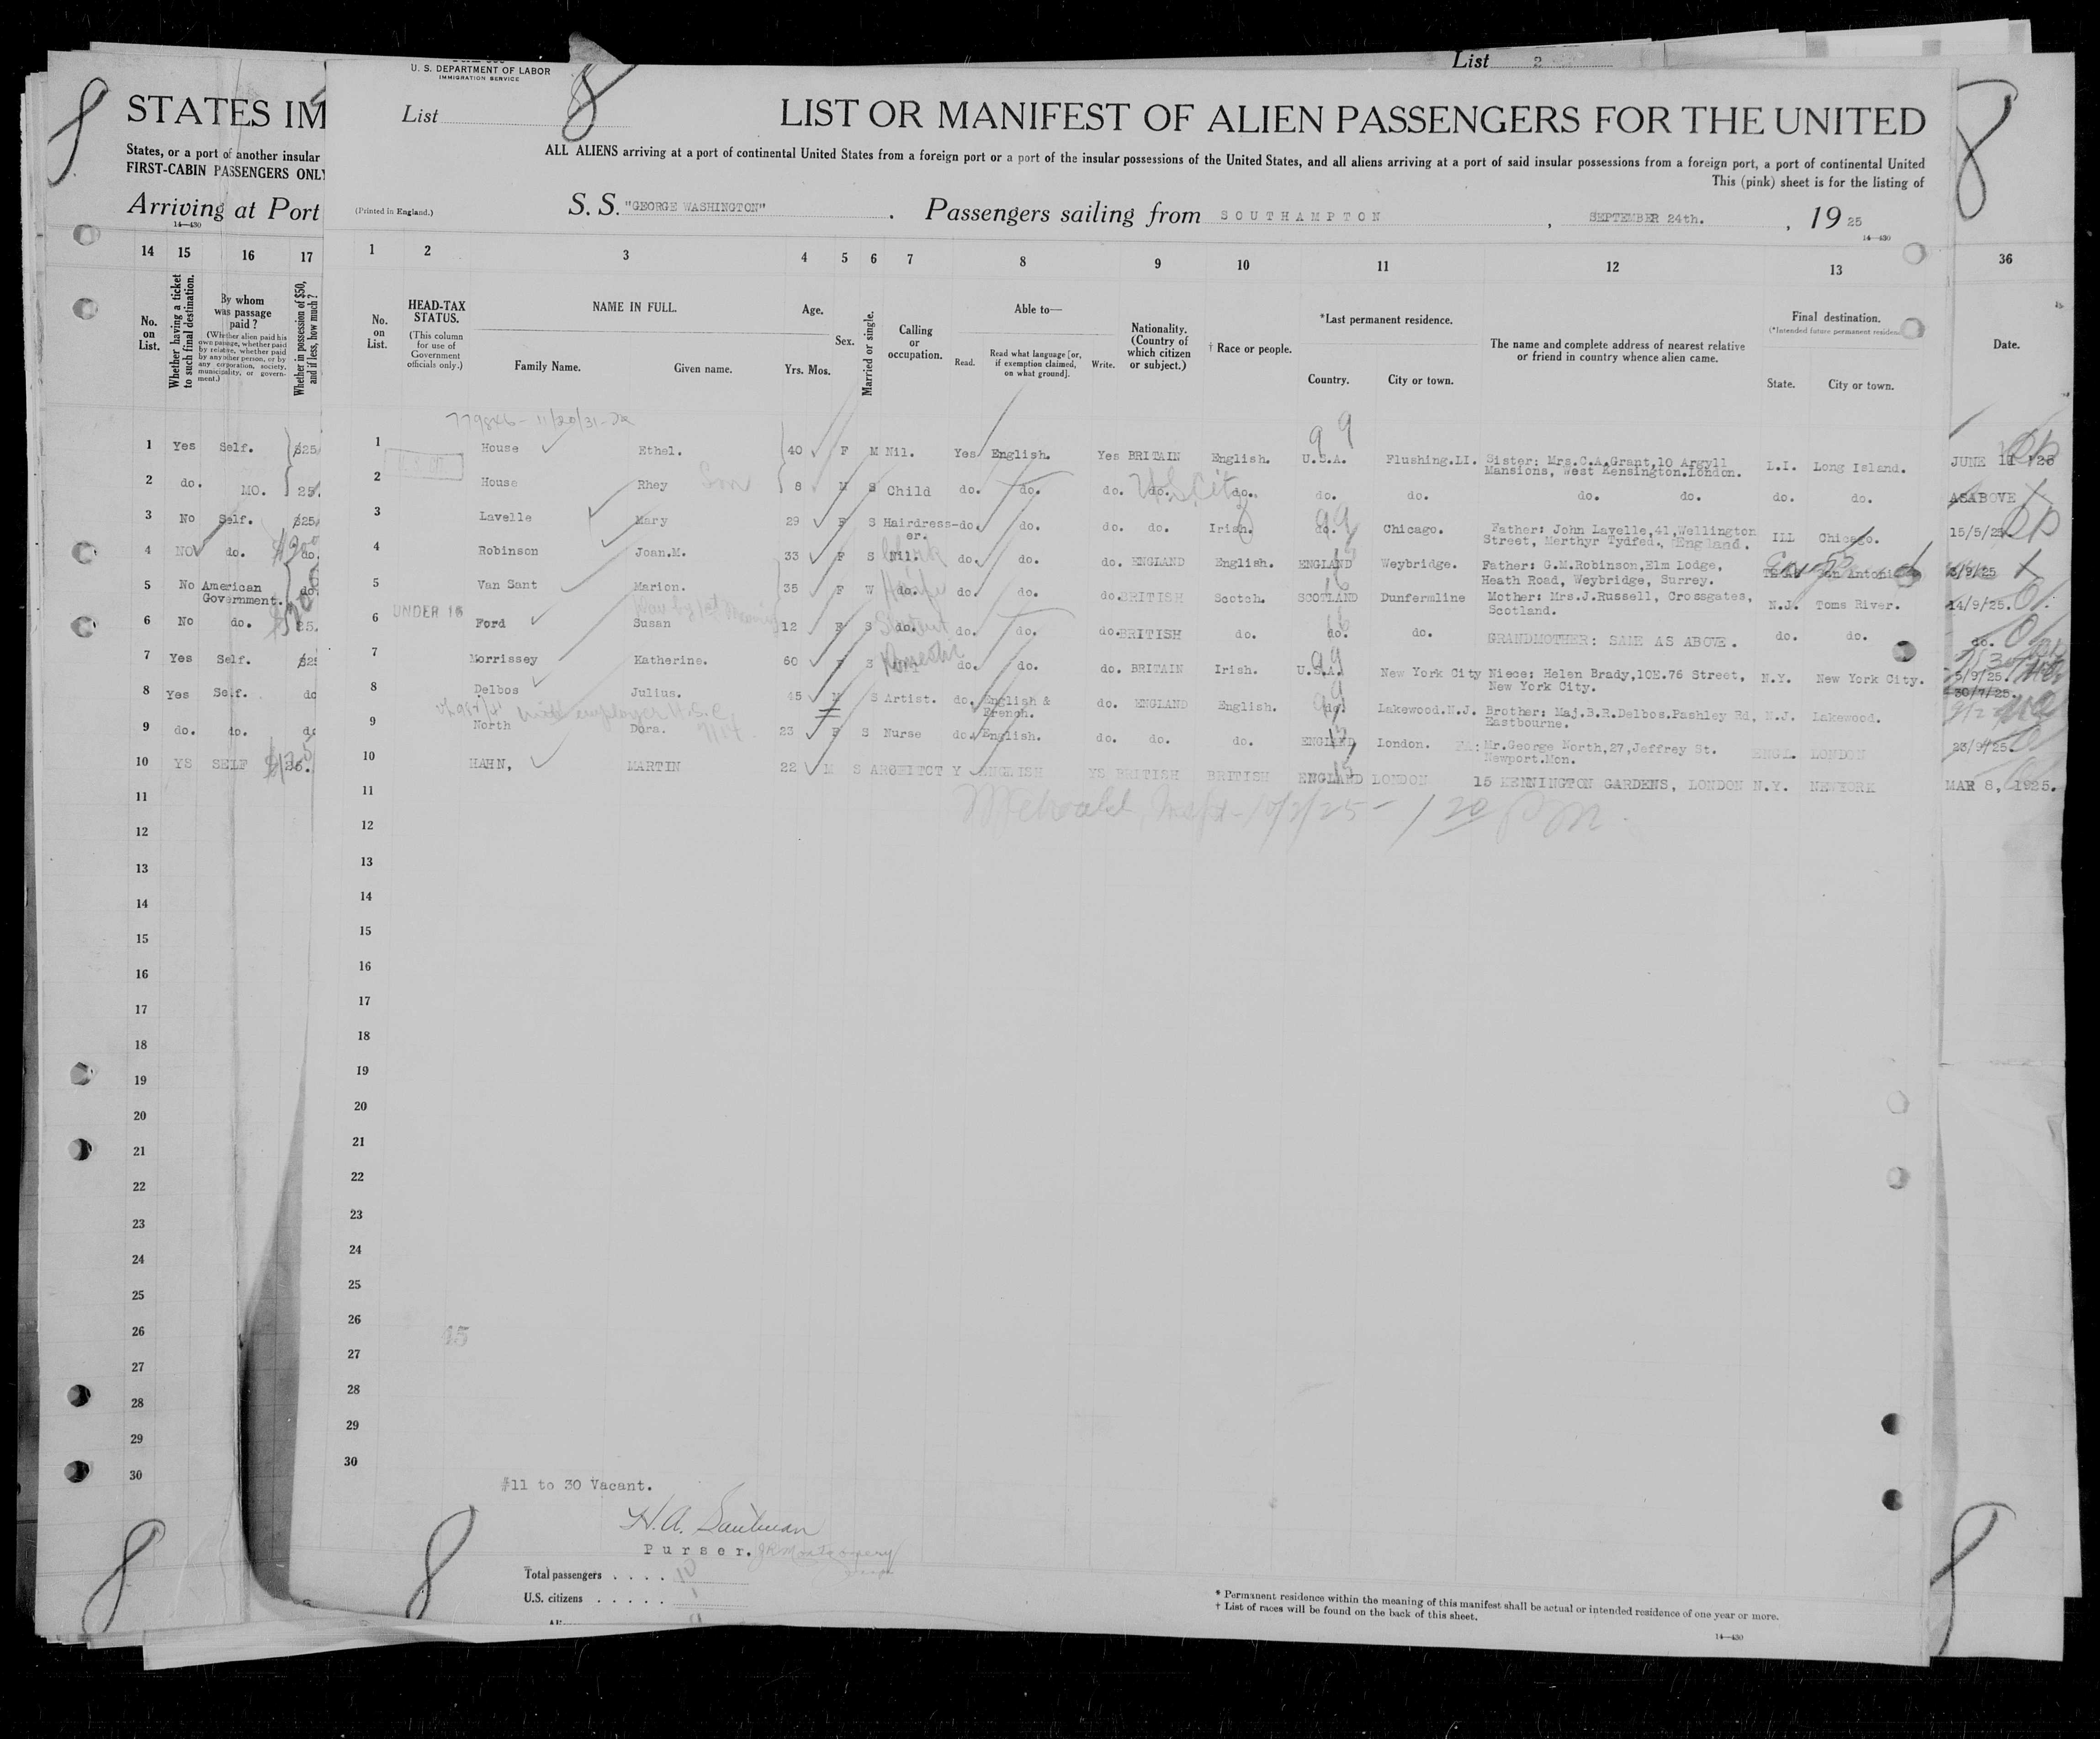 U. S. DEPARTMENT OF LABOR
IMMIGRATION SERVICE
List 2
List 8
8
8
STATES IM
LIST OR MANIFEST OF ALIEN PASSENGERS FOR THE UNITED
States, or a port of another insular
FIRST-CABIN PASSENGERS ONLY
ALL ALIENS arriving at a port of continental United States from a foreign port or a port of the insular possessions of the United States, and all aliens arriving at a port of said insular possessions from a foreign port, a port of continental United
This (pink) sheet is for the listing of
Arriving at Port
14—430
(Printed in England.)
S. S. "GEORGE WASHINGTON" . Passengers sailing from SOUTHAMPTON , SEPTEMBER 24th. , 19 25
14—430
14 15 16 17 1 2 3 4 5 6 7 8 9 10 11 12 13 36
No. on List.
Whether having a ticket to such final destination.
By whom was passage paid?
(Whether alien paid his own passage, whether paid by relative, whether paid by any other person, or by any corporation, society, municipality, or government.)
Whether in possession of $50, and if less, how much?
No. on List.
HEAD-TAX STATUS.
(This column for use of Government officials only.)
NAME IN FULL.
Family Name. Given name.
Age.
Yrs. Mos.
Sex.
Married or single.
Calling or occupation.
Able to—
Read. Read what language [or, if exemption claimed, on what ground]. Write.
Nationality. (Country of which citizen or subject.)
† Race or people.
*Last permanent residence.
Country. City or town.
The name and complete address of nearest relative or friend in country whence alien came.
Final destination.
(*Intended future permanent residence
State. City or town.
Date.
779846 - 11/20/31
1 Yes Self. $25 1 House Ethel. 40 F M Nil. Yes English. Yes BRITAIN English. U.S.A. Flushing.LI. Sister: Mrs.C.A.Grant,10 Argyll Mansions, West Kensington.London. L.I. Long Island. JUNE 11 '25
99
2 do. MO. 25. 2 House Rhey Son 8 M S Child do. do. do. do. U.S. Cit do. do. do. do. do. do. do. ASABOVE
3 No Self. $25 3 Lavelle Mary 29 F S Hairdress-er. do. do. do. do. Irish. do. Chicago. Father: John Lavelle,41,Wellington Street, Merthyr Tydfed., England. ILL Chicago. 15/5/25
99
4 NO do. do. 4 Robinson Joan.M. 33 F S Nil. do. do. do. ENGLAND English. ENGLAND Weybridge. Father: G.M.Robinson,Elm Lodge, Heath Road, Weybridge, Surrey. San Antonio 3/9/25
5 No American Government. do. 5 Van Sant Marion. 35 F W do. do. do. do. BRITISH Scotch. SCOTLAND Dunfermline Mother: Mrs.J.Russell, Crossgates, Scotland. N.J. Toms River. 14/9/25.
6 No do. 25. 6 UNDER 16 Ford Susan 12 F S do. Student do. do. do. BRITISH do. do. do. GRANDMOTHER: SAME AS ABOVE. do. do. do.
7 Yes Self. $25 7 Morrissey Katherine. 60 F S Domestic do. do. do. BRITAIN Irish. U.S.A. New York City Niece: Helen Brady,10E.76 Street, New York City. N.Y. New York City. 5/9/25
99
8 Yes Self. do 8 Delbos Julius. 45 M S Artist. do. English & French. do. ENGLAND English. do. Lakewood.N.J. Brother: Maj.B.R.Delbos.Pashley Rd, Eastbourne. N.J. Lakewood. 30/7/25.
with employer U.S.C.
9 do. do. do 9 North Dora. 23 F S Nurse do. English. do. do. do. ENGLAND London. Mr.George North,27,Jeffrey St. Newport.Mon. ENGL. LONDON 23/9/25.
10 YS SELF 10 HAHN, MARTIN 22 M S ARCHITCT Y ENGLISH YS BRITISH BRITISH ENGLAND LONDON 15 KENNINGTON GARDENS, LONDON N.Y. NEWYORK MAR 8, 1925.
11 11
10/2/25 - 1 20 PM.
12 12
13 13
14 14
15 15
16 16
17 17
18 18
19 19
20 20
21 21
22 22
23 23
24 24
25 25
26 26
27 27
28 28
29 29
30 30
#11 to 30 Vacant.
Purser.
Total passengers . . . . 10
U.S. citizens . . . . . 1
* Permanent residence within the meaning of this manifest shall be actual or intended residence of one year or more.
† List of races will be found on the back of this sheet.
14—430
8 8 8